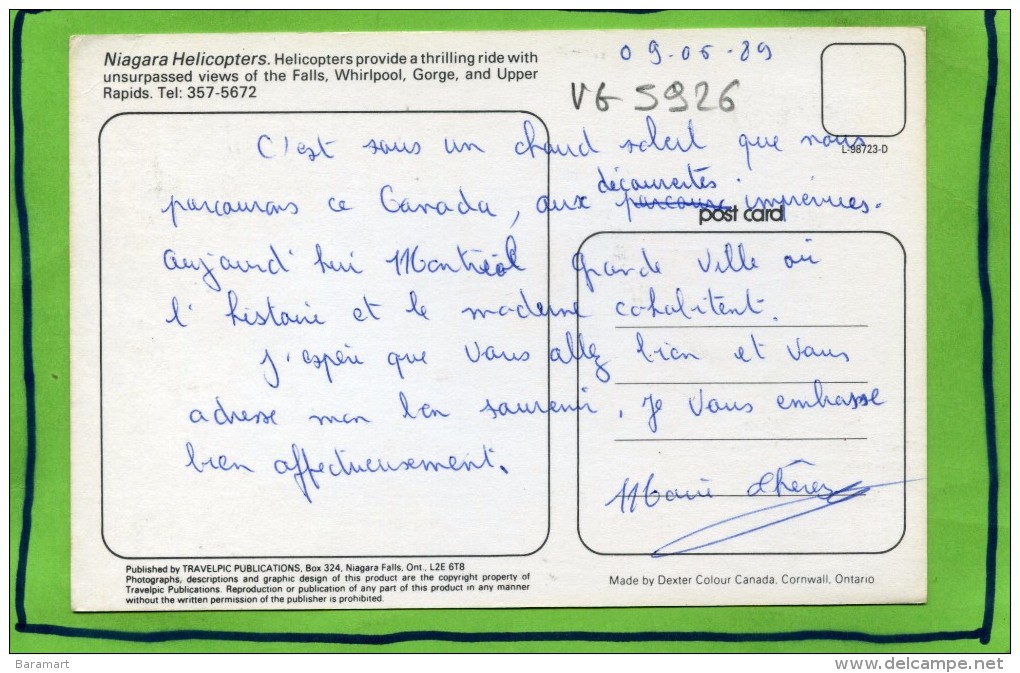 Niagara Helicopters. Helicopters provide a thrilling ride with
unsurpassed views of the Falls, Whirlpool, Gorge, and Upper
Rapids. Tel: 357-5672
09-06-89
VG 5926
L-98723-D
C'est sous un chaud soleil que nous
parcourons ce Canada, aux parcours découvertes imprévues.
post card
Aujourd'hui Montréal grande ville où
l'histoire et le moderne cohabitent.
J'espère que vous allez bien et vous
adresse mon bon souvenir. Je vous embrasse
bien affectueusement.
Marie Thérèse
Published by TRAVELPIC PUBLICATIONS, Box 324, Niagara Falls, Ont., L2E 6T8
Photographs, descriptions and graphic design of this product are the copyright property of
Travelpic Publications. Reproduction or publication of any part of this product in any manner
without the written permission of the publisher is prohibited.
Made by Dexter Colour Canada, Cornwall, Ontario
Baramart
www.delcampe.net